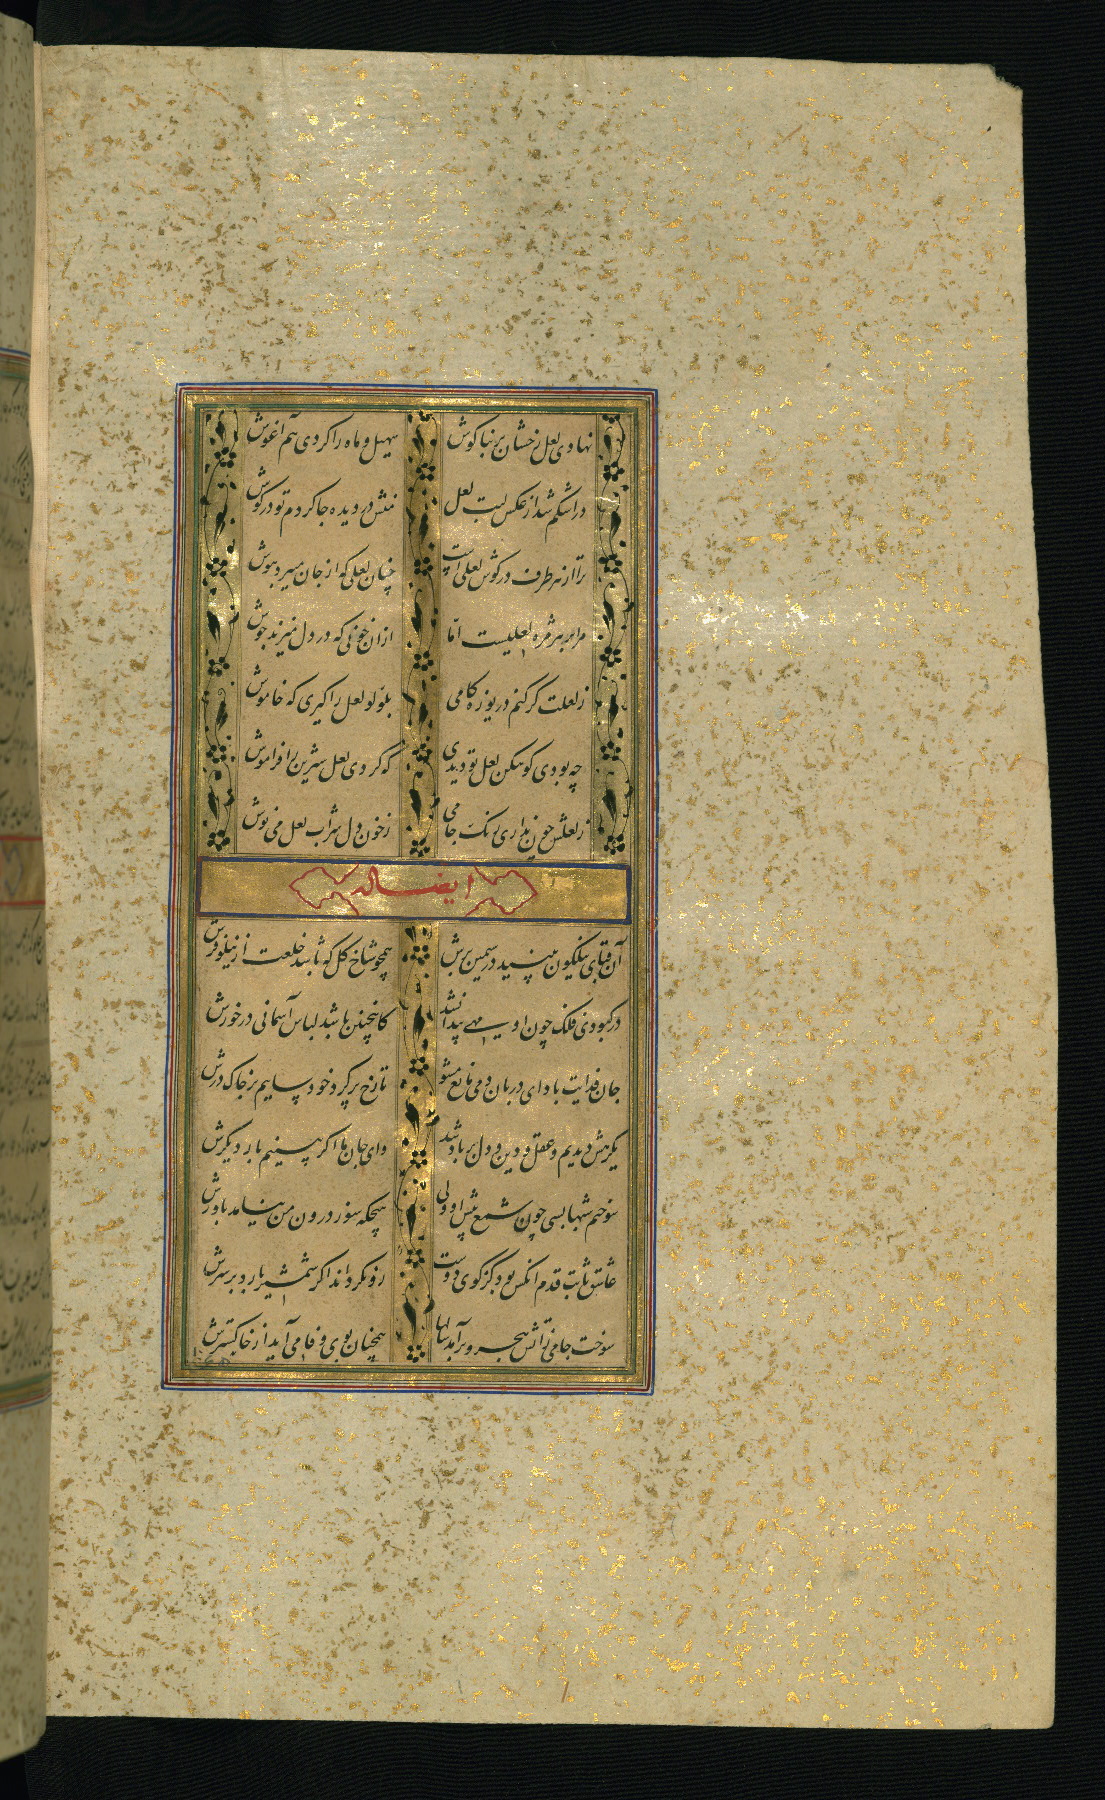 نهادی لعل رخشان بر بناکوش سهیل و ماه را کردی هم اغوش
در اشکم شد از عکس لبت لعل منش در دیده جا کردم تو در کوش
ترا از هر طرف در کوش لعلی است چنان لعلی که از جان میبرد هوش
مرا بر هر مژه لعلیست اما ازان خونی که در دل میزند جوش
ز لعلت کر کنم دریوزه کامی بلولو لعل را کیری که خاموش
چه بودی کوهکن لعل تو دیدی که کردی لعل شیرین را فراموش
ز لعلش چون نداری رنک جامی ز خون دل شراب لعل می نوش
ایضا له
آن قبای نیلکون بینید در سیمین برش همچو شاخ کل که باشد خلعت از نیلوفرش
در کبودی فلک چون او مهی پیدا نشد کانچنین باشد لباس آسمانی در خورش
جان فدایت باد ای دربان دمی مانع مشو تا رخ پر کرد خود سایم بر خاک درش
یکرهش دیدیم و عقل و دین و دل بر باد شد وای جان ما اکر بینیم بار دیکرش
سوختم شبها بسی چون شمع پیش او ولی هیچکه سوز درون من نیامد باورش
عاشق ثابت قدم آنکس بود کز کوی دوست رو نکرداند اکر شمشیر بارد بر سرش
سوخت جامی ز آتش هجر و برآمد سالها همچنان بوی وفا می آید از خاکسترش